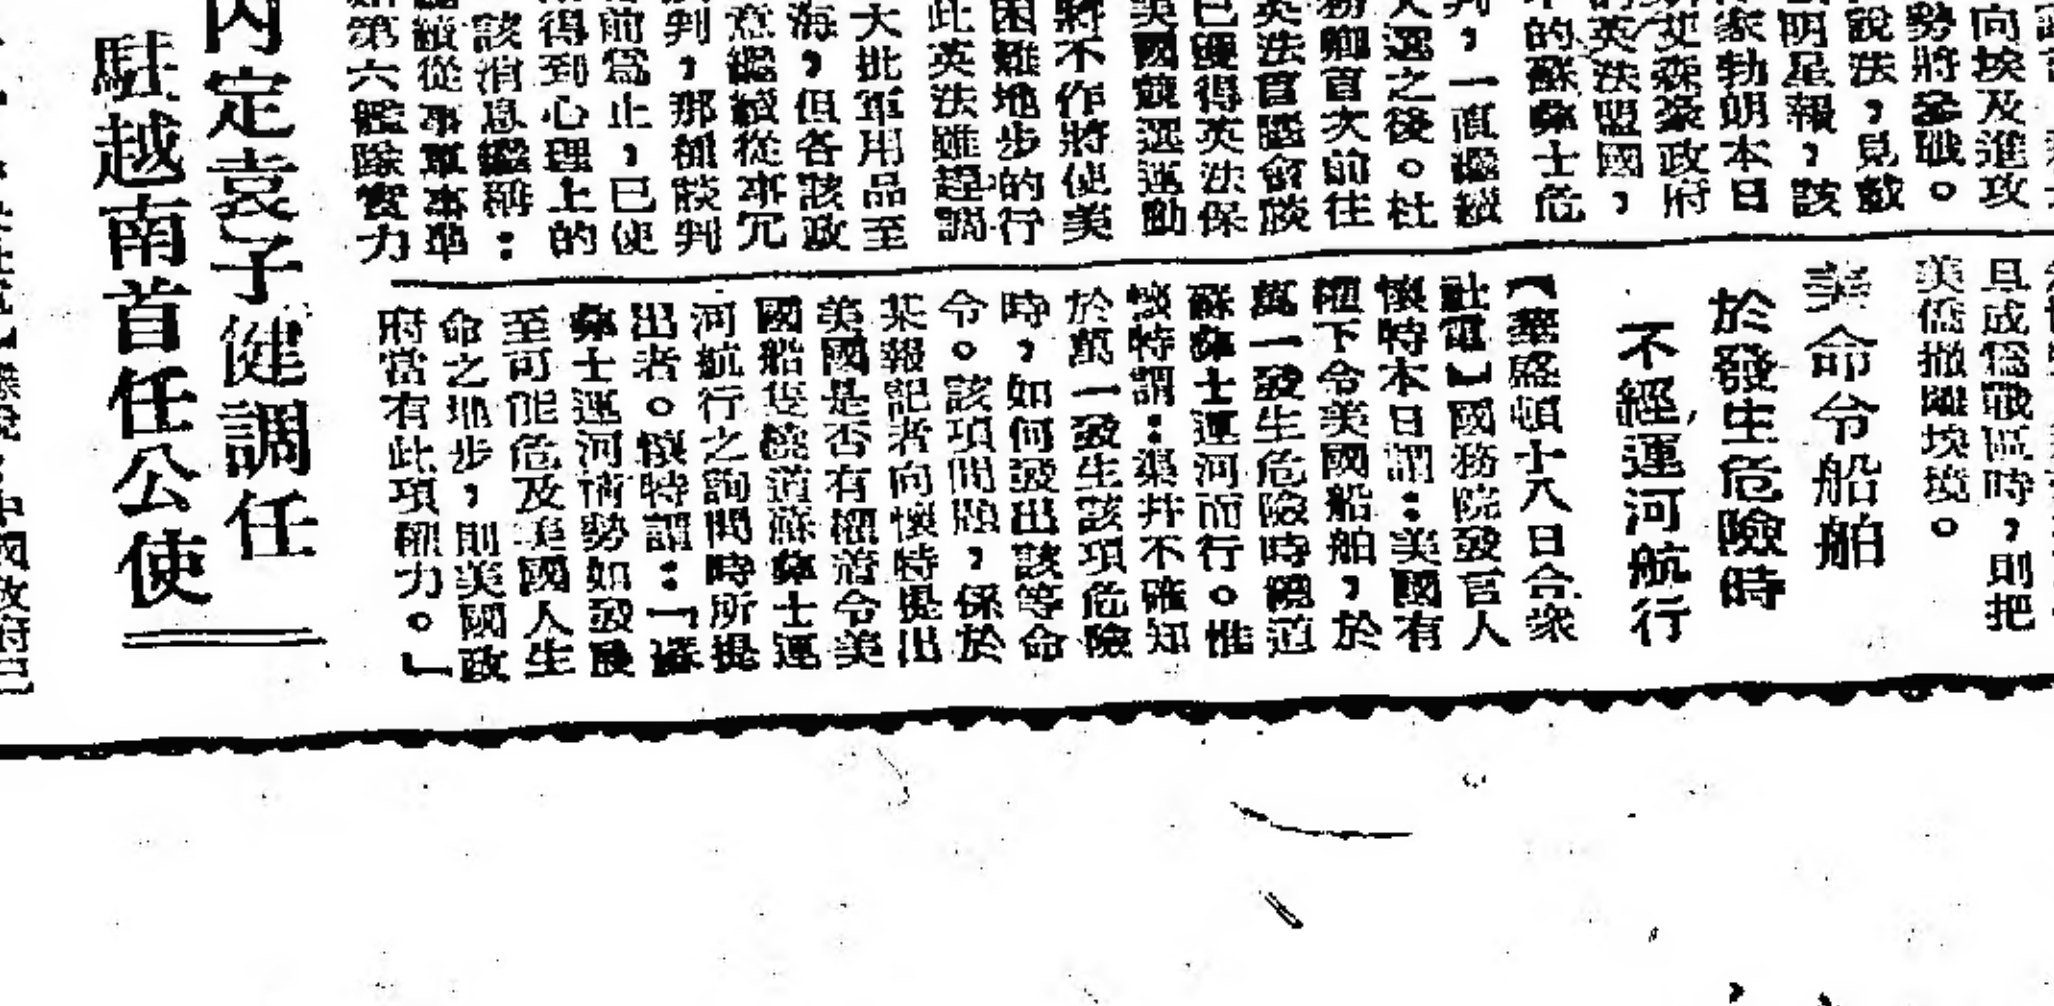 向埃及進攻
勢將參戰。
說法，見戲
明星報，該
家勃朗本日
政府
英法盟國，
的蘇彝士危
判，一直繼續
大選之後。杜
務卿首次前往
英法首腦會談
已獲得英法保
美國競選運動
將不作將使美
困難地步的行
此英法雖強調
大批軍用品至
海，但各該政
意繼續從事冗
判，那種談判
前爲止，已使
得到心理上的
該消息繼稱：
繼續從事軍事準
第六艦隊實力
且成爲戰區時，則把
美僑撤離埃境。
美命令船舶
於發生危險時
不經運河航行
【華盛頓十八日合衆
社電】國務院發言人
懷特本日謂：美國有
權下令美國船舶，於
萬一發生危險時繞道
蘇彝士運河而行。惟
懷特謂：渠并不確知
於萬一發生該項危險
時，如何發出該等命
令。該項問題，係於
某報記者向懷特提出
美國是否有權着令美
國船隻繞道蘇彝士運
河航行之詢問時所提
出者。懷特謂：「蘇
彝士運河情勢如發展
至可能危及美國人生
命之地步，則美國政
府當有此項權力。」
內定袁子健調任
駐越南首任公使
中國政府已